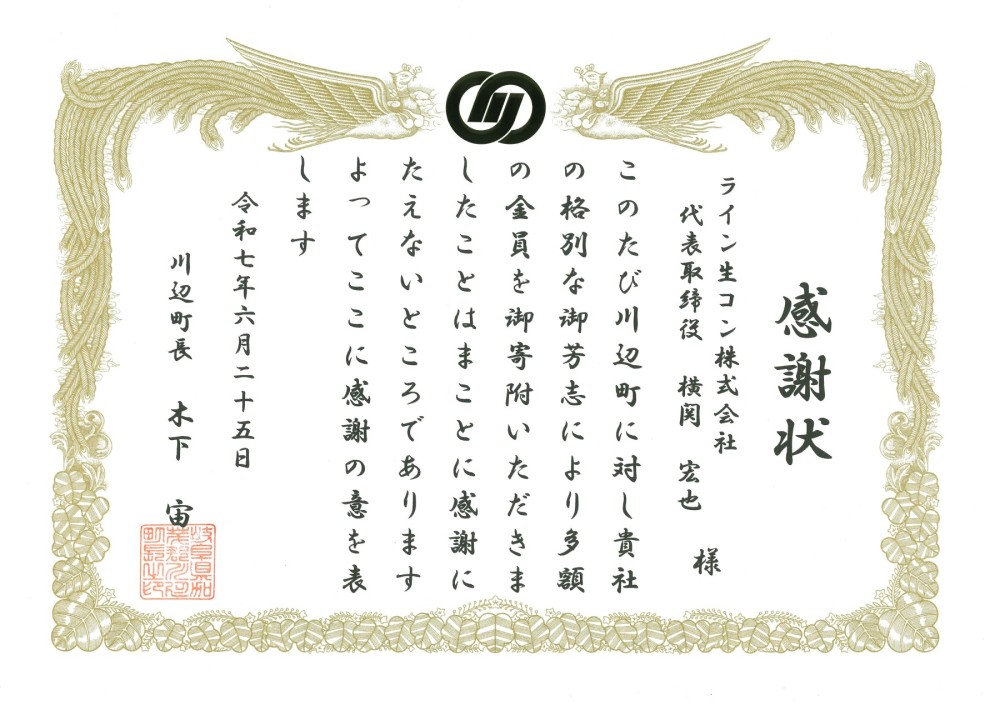 感謝状
ライン生コン株式会社
代表取締役 横関 宏也 様
このたび川辺町に対し貴社
の格別な御芳志により多額
の金員を御寄附いただきま
したことはまことに感謝に
たえないところであります
よってここに感謝の意を表
します
令和七年六月二十五日
川辺町長 木下 宙